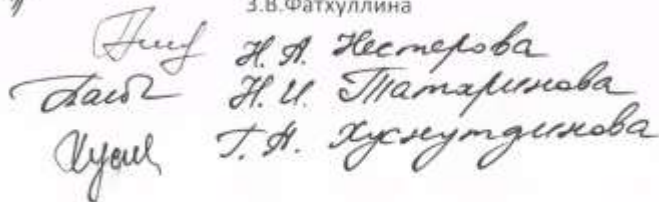 З.В.Фатхуллина
Н. А. Нестерова
Н. И. Татаринова
Г. Н. Хуснутдинова